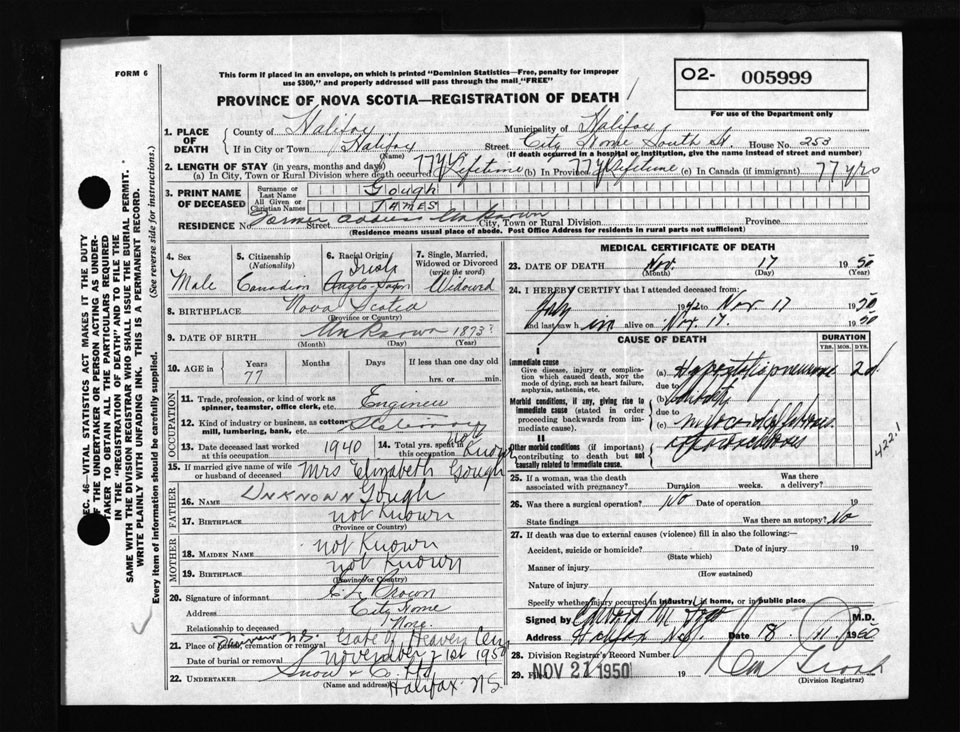 FORM 6
This form if placed in an envelope, on which is printed "Dominion Statistics—Free, penalty for improper
use $300," and properly addressed will pass through the mail "FREE"
O2- 005999
PROVINCE OF NOVA SCOTIA—REGISTRATION OF DEATH
For use of the Department only
1. PLACE OF DEATH
County of Halifax Municipality of Halifax
If in City or Town Halifax Street City Home South St. House No. 253
(Name) (If death occurred in a hospital or institution, give the name instead of street and number)
2. LENGTH OF STAY (in years, months and days)
(a) In City, Town or Rural Division where death occurred 77 yrs Lifetime (b) In Province 77 y Lifetime (c) In Canada (if immigrant) 77 yrs
3. PRINT NAME OF DECEASED
Surname or Last Name Gough
All Given or Christian Names JAMES
RESIDENCE No. Former address unknown Street City, Town or Rural Division Province
(Residence means usual place of abode. Post Office Address for residents in rural parts not sufficient)
4. Sex
Male
5. Citizenship
(Nationality)
Canadian
6. Racial Origin
Irish
Anglo-Saxon
7. Single, Married, Widowed or Divorced
(write the word)
Widowed
8. BIRTHPLACE Nova Scotia
(Province or Country)
9. DATE OF BIRTH Unknown 1873?
(Month) (Day) (Year)
10. AGE in Years Months Days If less than one day old
77 hrs. or min.
OCCUPATION
11. Trade, profession, or kind of work as
spinner, teamster, office clerk, etc. Engineer
12. Kind of industry or business, as cotton
mill, lumbering, bank, etc. Stationary
13. Date deceased last worked
at this occupation 1940
14. Total yrs. spent in
this occupation not known
15. If married give name of wife
or husband of deceased Mrs Elizabeth Gough
FATHER
16. NAME UNKNOWN Gough
17. BIRTHPLACE not known
(Province or Country)
MOTHER
18. MAIDEN NAME not known
19. BIRTHPLACE not known
(Province or Country)
20. Signature of informant Brown
Address City Home
Relationship to deceased None.
21. Place of burial, cremation or removal Gate of Heaven Cem
Date of burial or removal November 21st 1950
22. UNDERTAKER Snow & Co. Ltd
(Name and address) Halifax N.S.
MEDICAL CERTIFICATE OF DEATH
23. DATE OF DEATH Nov. 17 1950
(Month) (Day) (Year)
24. I HEREBY CERTIFY that I attended deceased from:
July 1942 to Nov. 17 1950
and last saw him alive on Nov. 17. 1950
CAUSE OF DEATH
DURATION
YRS. MOS. DYS.
I
Immediate cause
Give disease, injury or complication which caused death, not the mode of dying, such as heart failure, asphyxia, asthenia, etc.
(a) Hypostatic pneumonia 2 d.
due to
Morbid conditions, if any, giving rise to immediate cause (stated in order proceeding backwards from immediate cause).
(b)
due to
(c)
II
Other morbid conditions (if important) contributing to death but not causally related to immediate cause.
422.1
25. If a woman, was the death associated with pregnancy? Duration weeks. Was there a delivery?
26. Was there a surgical operation? No Date of operation 19
State findings Was there an autopsy? No
27. If death was due to external causes (violence) fill in also the following:—
Accident, suicide or homicide? Date of injury 19
(State which)
Manner of injury
(How sustained)
Nature of injury
Specify whether injury occurred in industry, in home, or in public place
Signed by M.D.
Address Halifax N.S. Date 18. 11. 1950
28. Division Registrar's Record Number
29. Filed NOV 21 1950 19
(Division Registrar)
SEC. 46—VITAL STATISTICS ACT MAKES IT THE DUTY
OF THE UNDERTAKER OR PERSON ACTING AS UNDER-
TAKER TO OBTAIN ALL THE PARTICULARS REQUIRED
IN THE "REGISTRATION OF DEATH" AND TO FILE THE
SAME WITH THE DIVISION REGISTRAR WHO SHALL ISSUE THE BURIAL PERMIT.
WRITE PLAINLY WITH UNFADING INK. THIS IS A PERMANENT RECORD.
Every item of information should be carefully supplied. (See reverse side for instructions.)